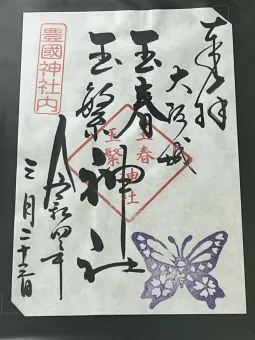 奉拝
大阪城
玉春
玉繁神社
令和四年
三月二十三日
豊國神社内
玉春
玉繁
神社